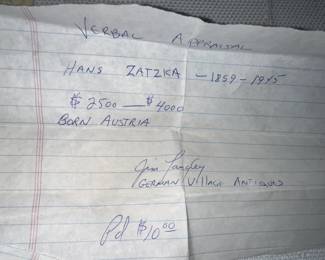 VERBAL APPRAISAL
HANS ZATZKA – 1859 – 1945
$ 2500 — $ 4000
BORN AUSTRIA
Jim
GERMAN VILLAGE ANTIQUES
Pd $10.00